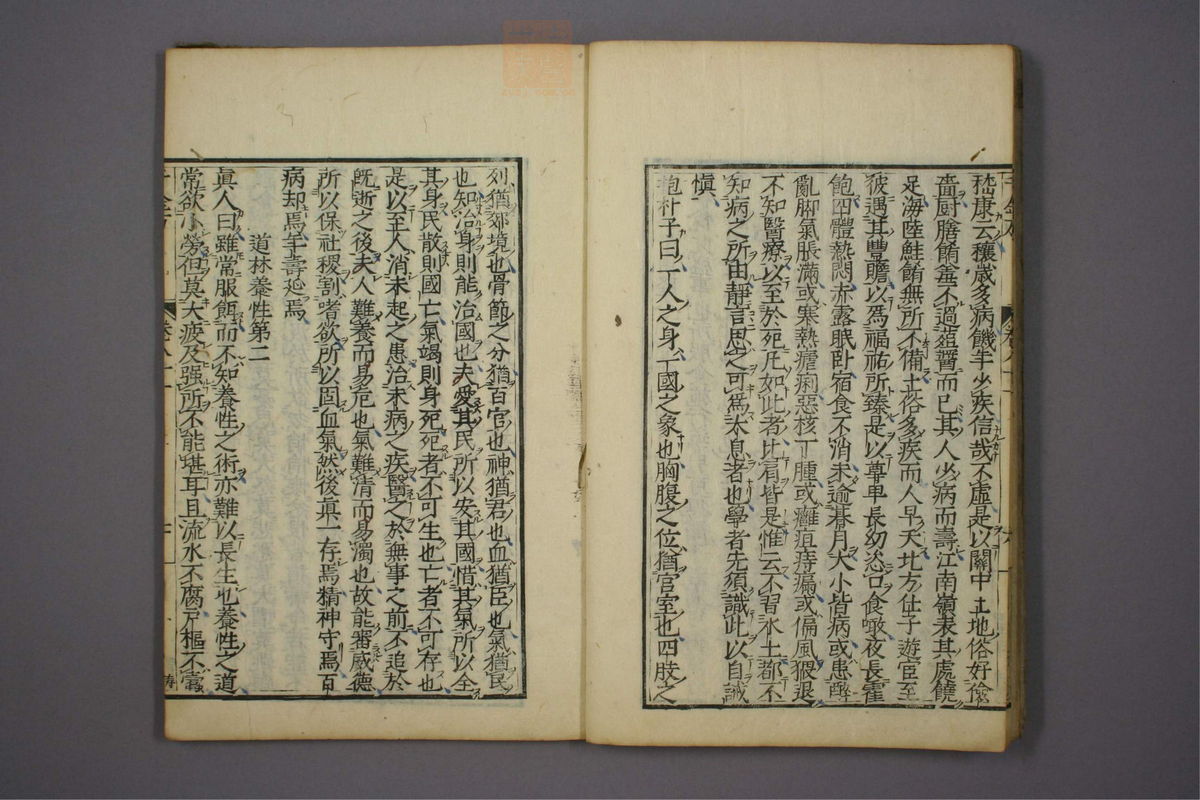 嵇康云穰歲多病饑年少疾信哉不虛是以關中土地俗好儉
嗇厨膳餚羞不過葅醬而已其人少病而壽江南嶺表其處饒
足海陸鮭餚無所不備土俗多疾而人早夭北方仕子遊宦至
彼遇其豐贍以爲福祐所臻是以尊卑長幼恣口食噉夜長霍
飽四體熱悶赤露眠卧宿食不消未逾碁月大小皆病或患
亂脚氣脹滿或寒熱瘧痢惡核丁腫或癰疽痔漏或偏風猥退
不知醫療以至於死凡如此者比肩皆是惟云不習水土都不
知病之所由靜言思之可爲太息者也學者先須識此以自誡
愼
抱朴子曰一人之身一國之象也胸腹之位猶宮室也四肢之
列猶郊境也骨節之分猶百官也神猶君也血猶臣也氣猶民
也知治身則能治國也夫愛其民所以安其國惜其氣所以全
其身民散則國亡氣竭則身死死者不可生也亡者不可存也
是以至人消未起之患治未病之疾醫之於無事之前不追於
既逝之後夫人難養而易危也氣難淸而易濁也故能審威德
所以保社稷割嗜欲所以固血氣然後眞一存焉精神守焉百
病却焉年壽延焉
道林養性第二
眞人曰雖常服餌而不知養性之術亦難以長生也養性之道
常欲小勞但莫大疲及强所不能堪耳且流水不腐戸樞不蠹